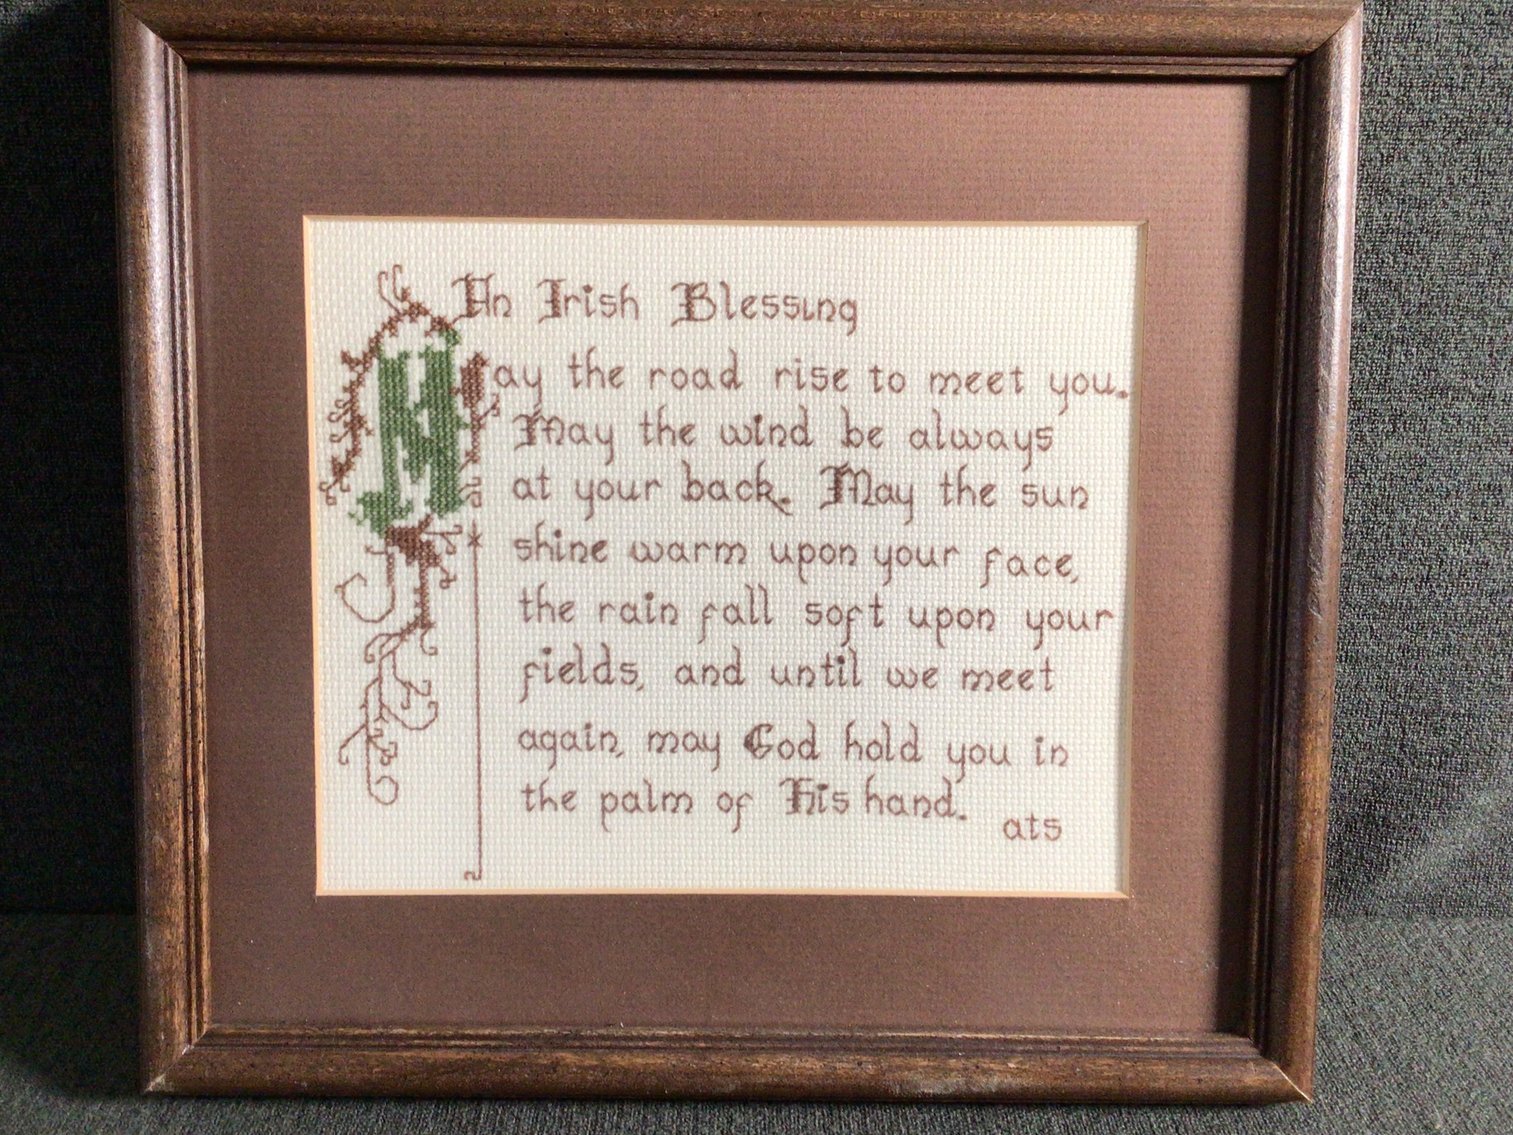 An Irish Blessing
May the road rise to meet you.
May the wind be always
at your back. May the sun
shine warm upon your face,
the rain fall soft upon your
fields, and until we meet
again, may God hold you in
the palm of His hand.
ats